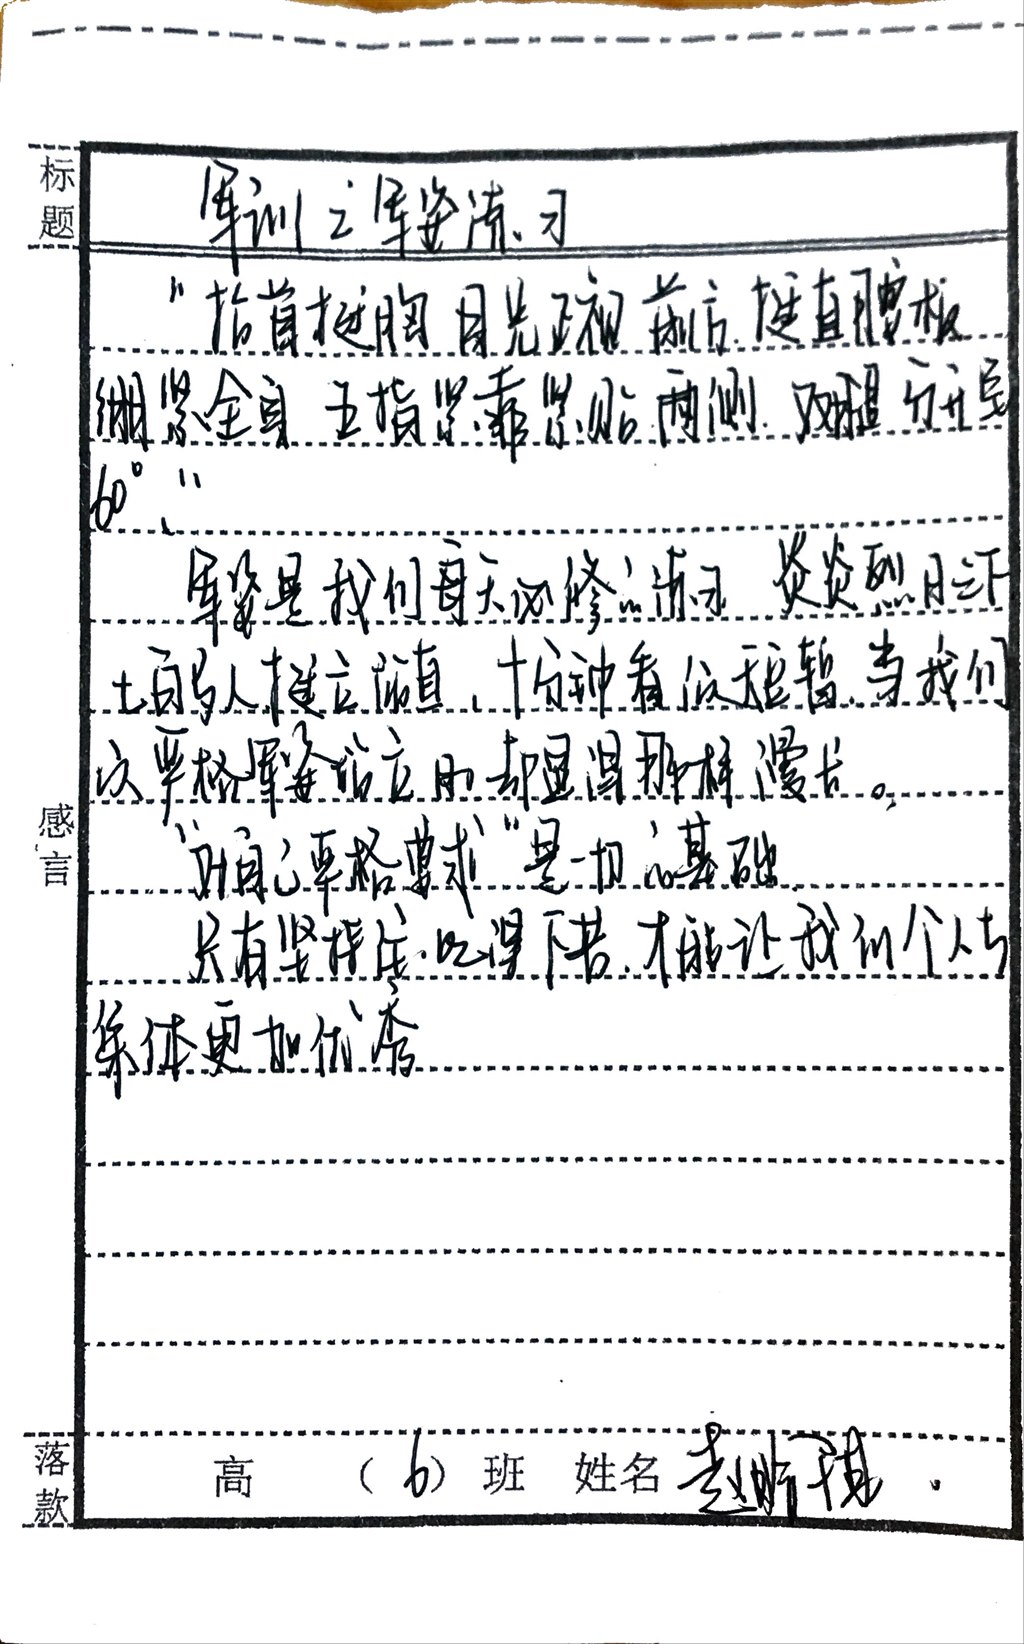 标题
军训之军姿练习
“抬首挺胸 目光正视前方.挺直腰板
绷紧全身 五指紧靠紧贴两侧.双腿分开呈
60°.”
军姿是我们每天必修的练习 炎炎烈日之下
七百多人挺立操真.十分钟看似短暂.当我们
以严格军姿站立时 却显得那样漫长。
“对自己严格要求”是一切的基础.
只有坚持住.吃得下苦.才能让我们个人与
集体更加优秀
感言
落款
高 （6）班 姓名 赵